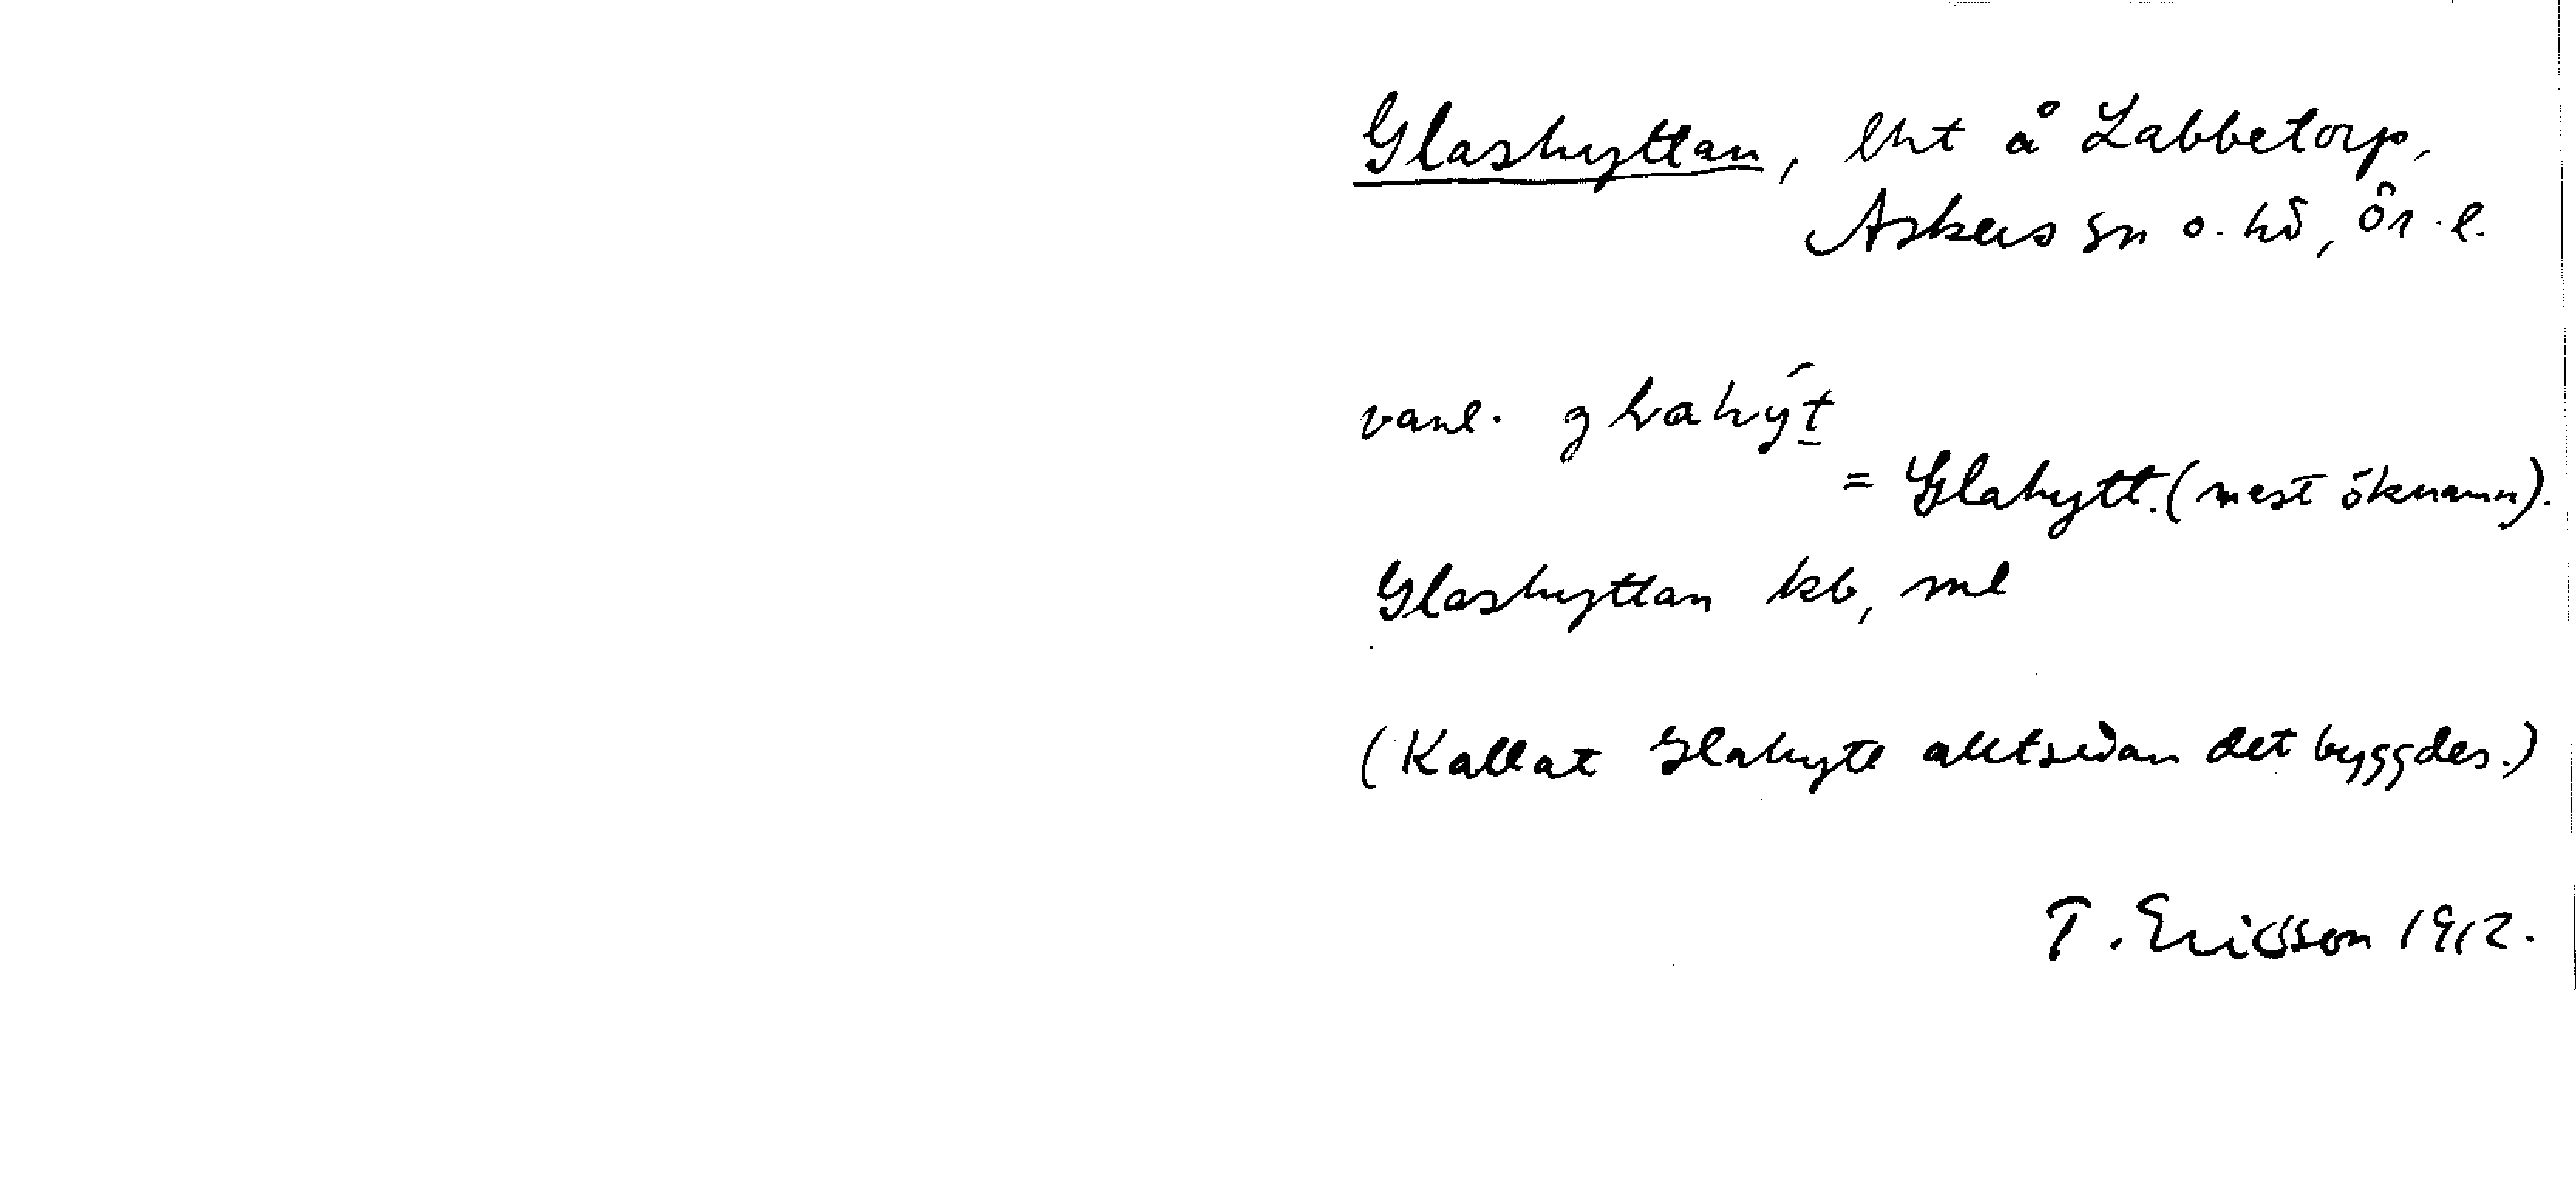 Glashyttan, lht å Labbetorp,
Askers sn o. hd, Ör. l.
vanl.
= Glahytt. (mest öknamn).
Glashyttan kb, ml
(Kallat Glahytt alltsedan det byggdes.)
T. Ericsson 1912.